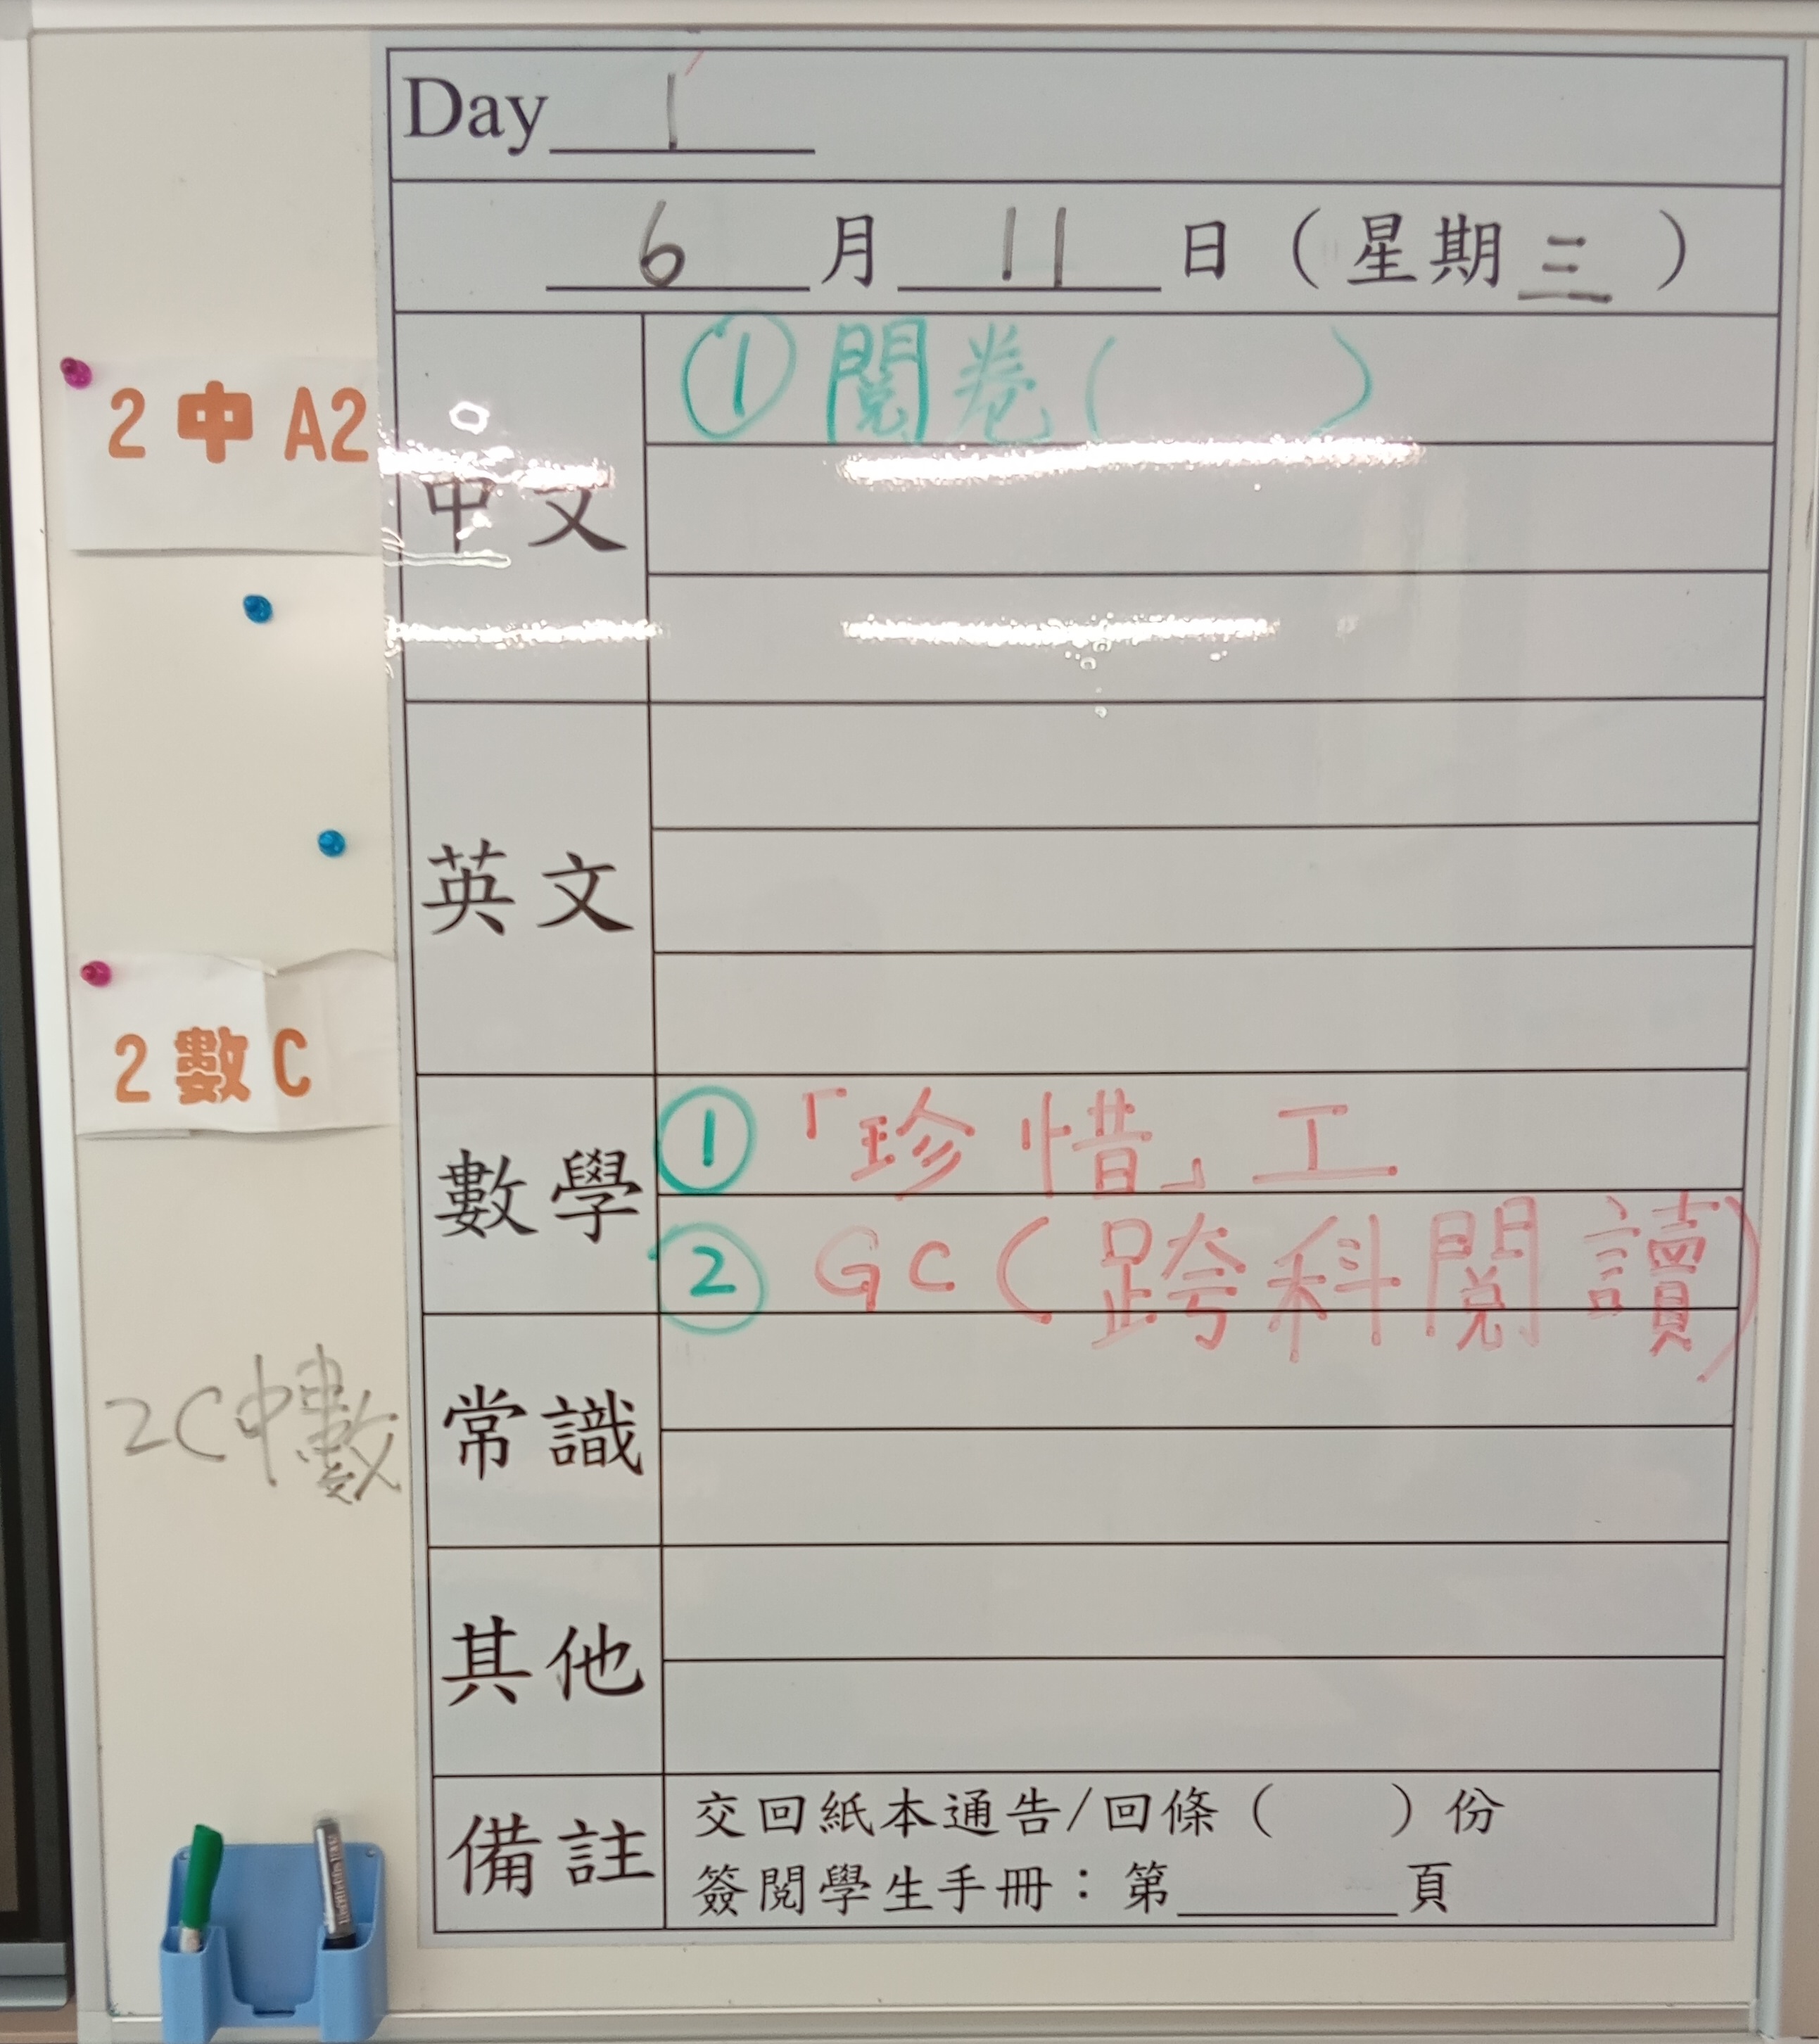 Day 1
6 月 11 日 (星期 三 )
2 中 A2
中文
① 閱卷 ( )
英文
2 數 C
數學
① 「珍惜」工
② GC (跨科閱讀)
2C中數
常識
其他
備註
交回紙本通告/回條 ( ) 份
簽閱學生手冊：第____頁